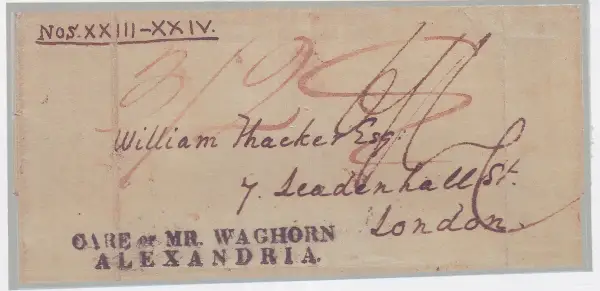 Nos. XXIII-XXIV.
William Thacker Esq.
7. Leadenhall St.
London.
CARE OF MR. WAGHORN
ALEXANDRIA.